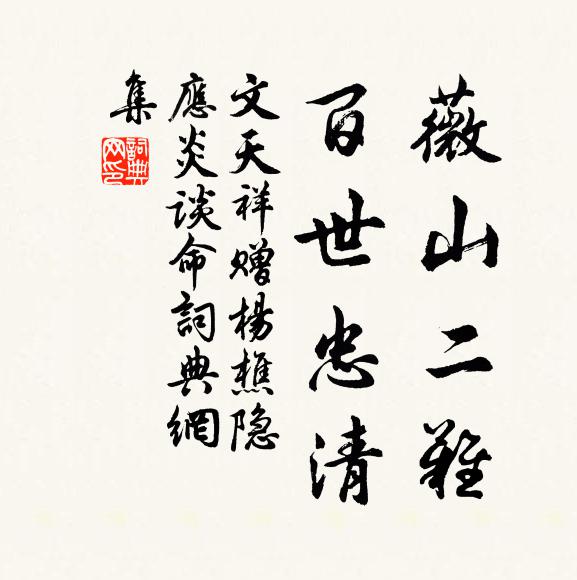 薇山二難
百世忠清
文天祥赠楊樵隐
應炎谈命詞典網
集
詞典
网印